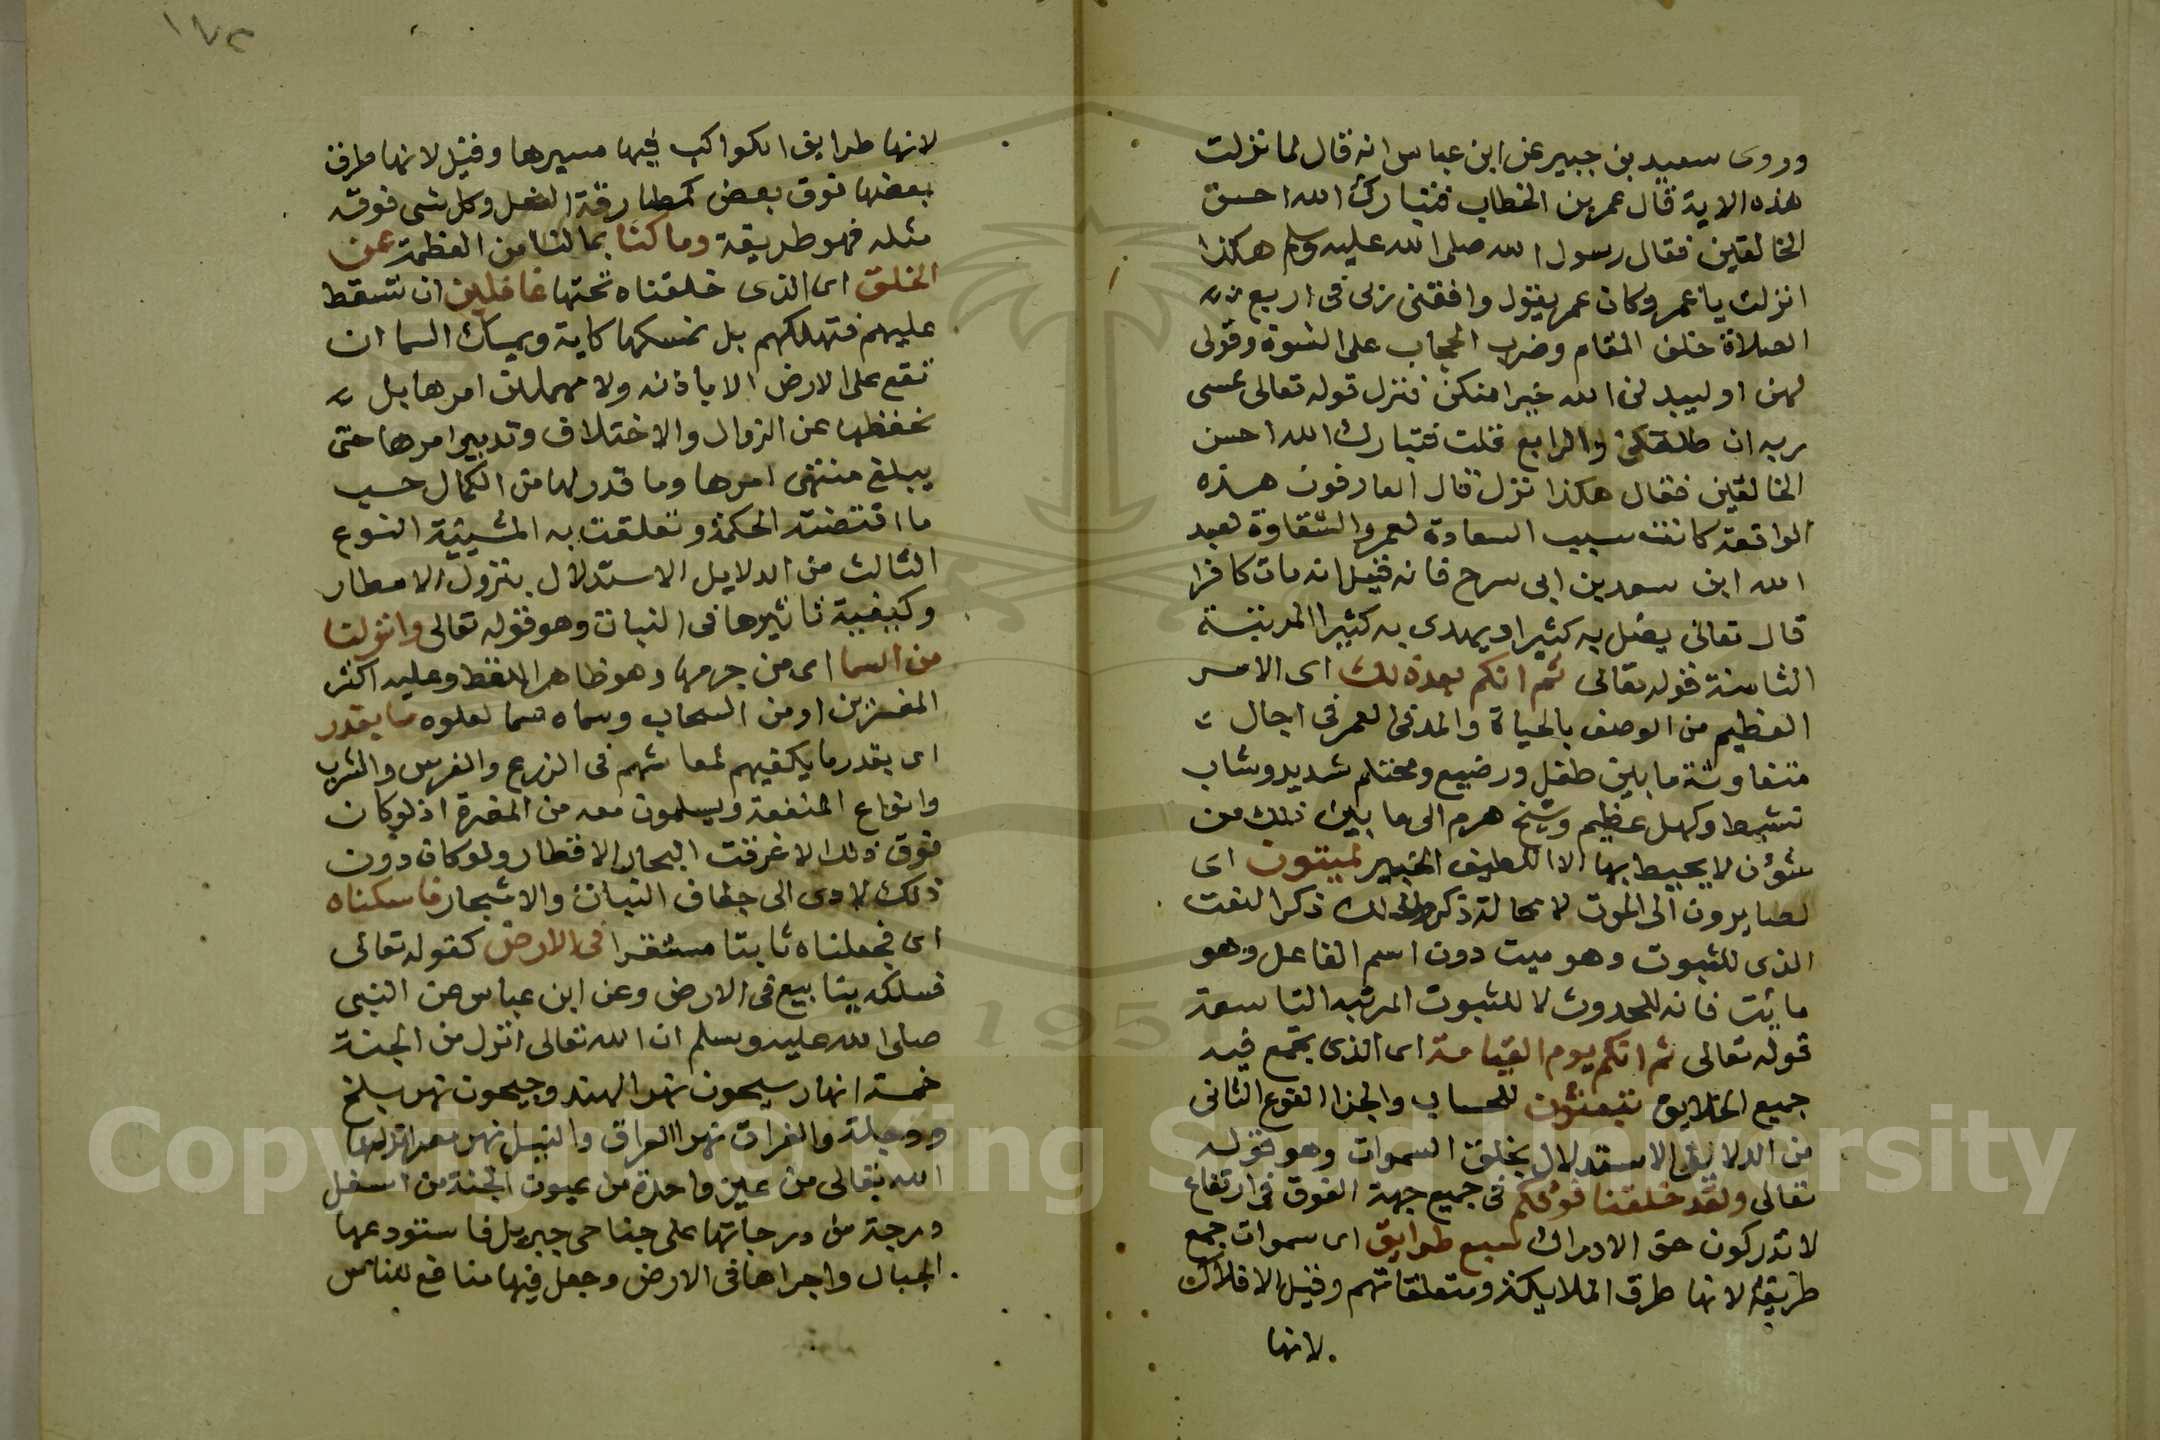 وروى سعيد بن جبير عن ابن عباس انه قال لما نزلت
هذه الاية قال عمر بن الخطاب فتبارك الله احسن
الخالقين فقال رسول الله صلى الله عليه وسلم هكذا
انزلت يا عمر وكان عمر يقول وافقنى ربى فى اربع
الصلاة خلف المقام وضرب الحجاب على النسوة وقولى
لهن او ليبدلن الله خيرا منكن فنزل قوله تعالى عسى
ربه ان طلقكن والرابع قلت فتبارك الله احسن
الخالقين فقال هكذا نزل قال العارفون هذه
الواقعة كانت سبب السعادة لعمر والشقاوة لعبد
الله ابن سعد بن ابى سرح فانه قيل انه مات كافرا
قال تعالى يضل به كثيرا ويهدى به كثيرا المرتبة
الثامنة قوله تعالى ثم انكم بعد ذلك اى الامر
العظيم من الوصف بالحياة والمد فى العمر فى اجال
متفاوتة ما بين طفل ورضيع ومحتلم شديد وشاب
نشيط وكهل عظيم وشيخ هرم الى ما بين ذلك من
شؤن لا يحيط بها الا اللطيف الخبير لميتون اى
لصايرون الى الموت لا محالة ذكر ذكر النعت
الذى للثبوت وهو ميت دون اسم الفاعل وهو
مائت فانه للحدوث لا للثبوت المرتبه التاسعة
قوله تعالى ثم انكم يوم القيامة اى الذى يجمع فيه
جميع الخلايق تبعثون للحساب والجزا النوع الثانى
من الدلايل الاستدلال بخلق السموات وهو قوله
تعالى ولقد خلقنا فوقكم فى جميع جهة الفوق فى ارتفاع
لا تدركون حق الادراك سبع طرايق اى سموات جمع
طريقة لانها طرق الملايكة ومتعلقاتهم وقيل الافلاك
لانها
١٧٣
لانها طرايق الكواكب فيها مسيرها وقيل لانها طرق
بعضها فوق بعض كمطارقة النعل وكل شى فوقه
مثله فهو طريقة وما كنا بما لنا من العظمة عن
الخلق اى الذى خلقناه تحتها غافلين ان تسقط
عليهم فتهلكهم بل نمسكها كاية ويمسك السما ان
تقع على الارض الا باذنه ولا مهملين امرها بل
نحفظها عن الزوال والاختلاف وتدبير امرها حتى
يبلغ منتهى امرها وما قدر لها من الكمال حسب
ما اقتضته الحكمة وتعلقت به المشيئة النوع
الثالث من الدلايل الاستدلال بنزول الامطار
وكيفية تاثيرها فى النبات وهو قوله تعالى وانزلنا
من السما اى من جرمها وهو ظاهر اللفظ وعليه اكثر
المفسرين او من السحاب وسماه سما لعلوه ما بقدر
اى بقدر ما يكفيهم لمعاشهم فى الزرع والغرس والشرب
وانواع المنفعة ويسلمون معه من المضرة اذ لو كان
فوق ذلك لاغرقت البحار الاقطار ولو كان دون
ذلك لادى الى جفاف النبات والاشجار فاسكناه
اى فجعلناه ثابتا مستقرا فى الارض كقوله تعالى
فسلكه ينابيع فى الارض وعن ابن عباس عن النبى
صلى الله عليه وسلم ان الله تعالى انزل من الجنة
خمسة انهار سيحون نهر الهند وجيحون نهر بلخ
ودجلة والفرات نهرا العراق والنيل نهر مصر انزلها
الله تعالى من عين واحدة من عيون الجنة من اسفل
درجة من درجاتها على جناحى جبريل فاستودعها
الجبال واجراها فى الارض وجعل فيها منافع للناس